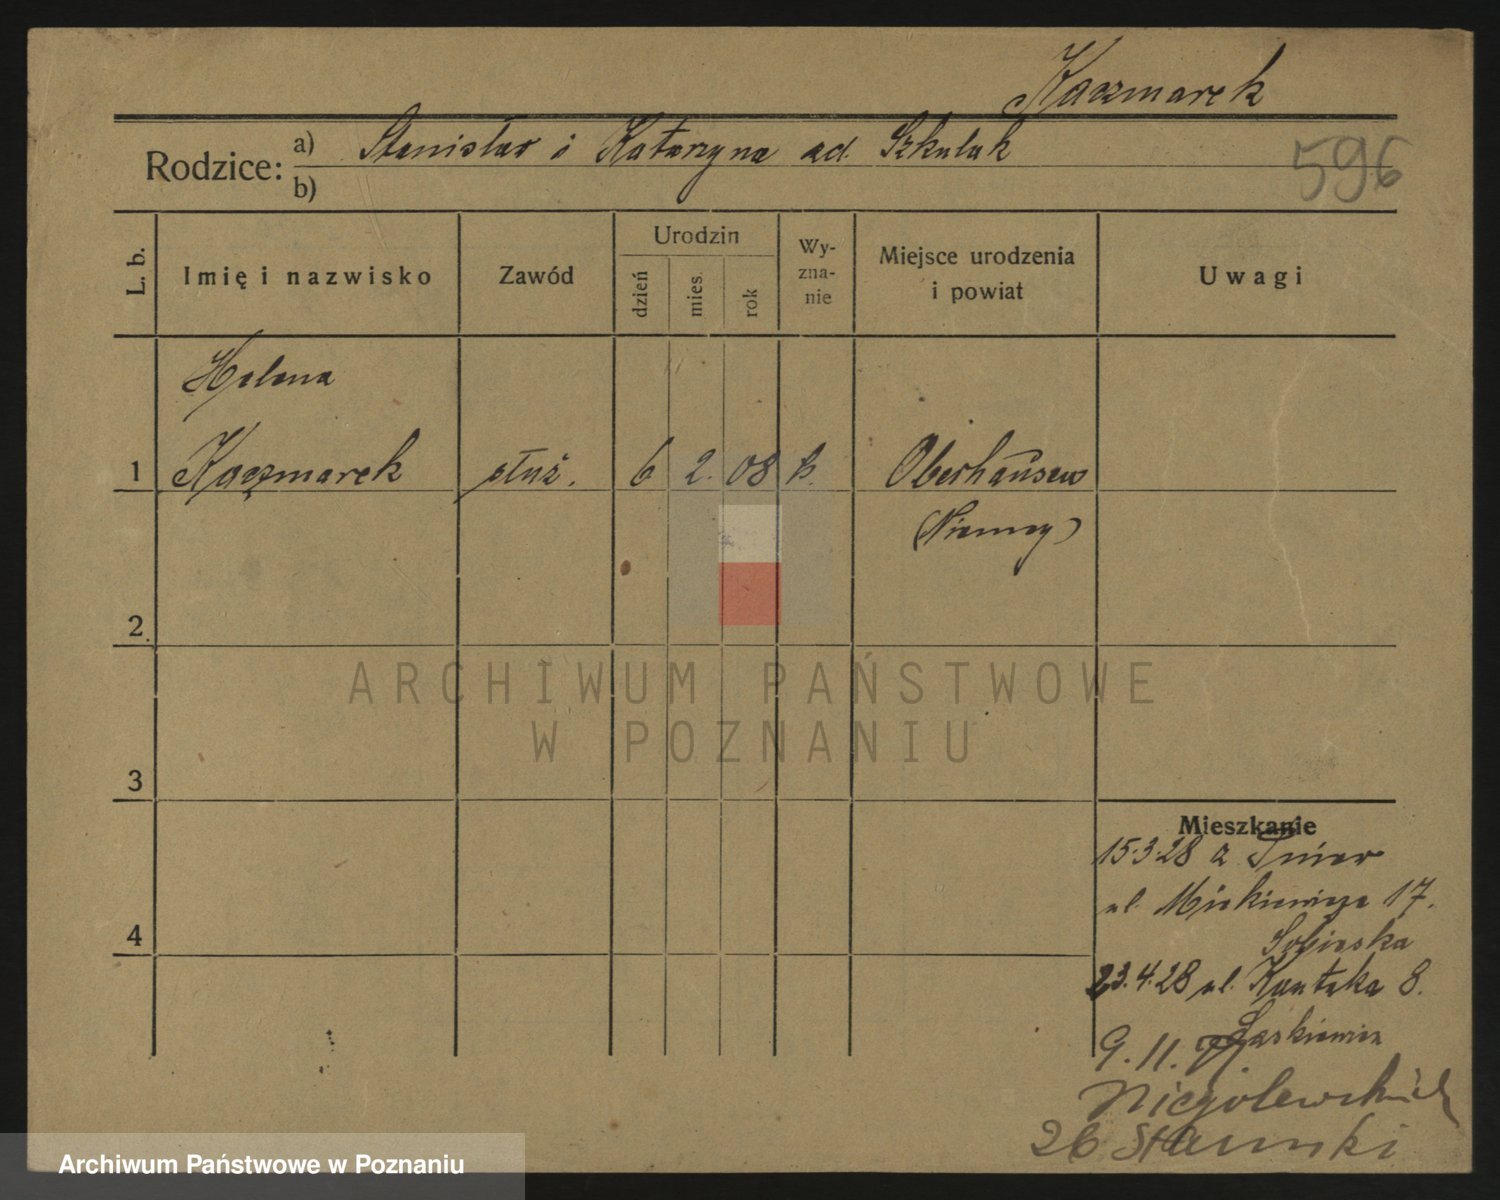 Kaczmarek
Rodzice: a) Stanisław i Katarzyna zd. Szkulak
b)
596
L. b. Imię i nazwisko Zawód Urodzin dzień mies. rok Wy-zna-nie Miejsce urodzenia i powiat Uwagi
Helena
1 Kaczmarek służ. 6 2. 08 k. Oberhausen
(Niemcy)
2
3
Mieszkanie
15.3.28 z
ul. Mickiewicza 17.
Sobieska
4
23.4.28 ul. Kantaka 8.
Laskiewicz
9.11.
Niegolewskich
26
ARCHIWUM PAŃSTWOWE
W POZNANIU
Archiwum Państwowe w Poznaniu